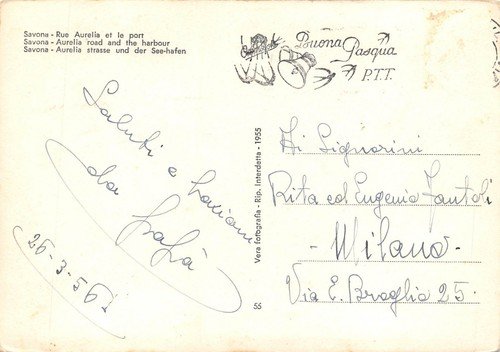 Savona - Rue Aurelia et le port
Savona - Aurelia road and the harbour
Savona - Aurelia strasse und der See-hafen
Buona
Pasqua
P.T.T.
Saluti e bacioni
da papà
26-3-56
Vera fotografia - Rip. Interdetta - 1955
55
Ai Signorini
Rita ed Eugenio Fantoli
- Milano -
Via E. Broglio 25 -